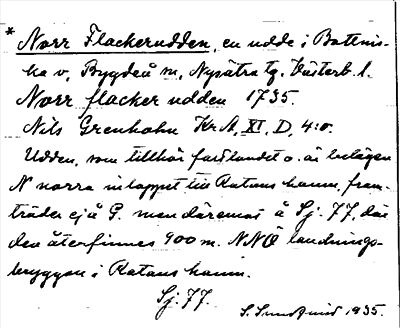 * Norr Flackerudden, en udde i Bottnis-
ka v, Bygdeå sn, Nysätra tg. Västerb. l.
Norr flacker udden 1735.
Nils Grenholm Kr. A, XI, D, 4:o.
Udden, som tillhör fastlandet o. är belägen
N norra inloppet till Ratans hamn, fram-
träder ej å G. men däremot å Sj. 77, där
den återfinnes 900 m. NNÖ landnings-
bryggan i Ratans hamn.
Sj. 77.
S. Sundqvist 1935.